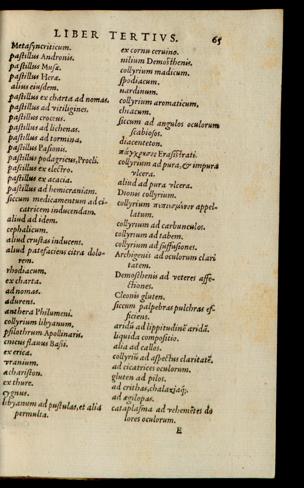 LIBER TERTIVS. 65
Metasyncriticum.
pastillus Andronis.
pastillus Musæ.
pastillus Heræ.
alius eiusdem.
pastillus ex charta ad nomas.
pastillus ad vitiligines.
pastillus croceus.
pastillus ad lichenas.
pastillus ad tormina.
pastillus Pasionis.
pastillus podagricus, Procli.
pastillus ex electro.
pastillus ex acacia.
pastillus ad hemicraniam.
siccum medicamentum ad ci-
catricem inducendam.
aliud ad idem.
cephalicum.
aliud crustas inducens.
aliud patefaciens citra dolo-
rem.
rhodiacum.
ex charta.
ad nomas.
adurens.
anthera Philumeni.
collyrium libyanum.
psilothrum Apollinaris.
cnicus stannus Bassi.
ex erica.
vranium.
achariston.
ex thure.
cygnus.
libyanum ad pustulas, et alia
permulta.
ex cornu ceruino.
nilium Demosthenis.
collyrium madicum.
spodiacum.
nardinum.
collyrium aromaticum.
chiacum.
siccum ad angulos oculorum
scabiosos.
diacenteton.
πάγχρηστος Erasistrati.
collyrium ad pura, & impura
vlcera.
aliud ad pura vlcera.
Dionis collyrium.
collyrium appel-
latum.
collyrium ad carbunculos.
collyrium ad tabem.
collyrium ad suffusiones.
Archigenis ad oculorum clari
tatem.
Demosthenis ad veteres affe-
ctiones.
Cleonis gluten.
siccum palpebras pulchras ef-
ficiens.
aridū ad lippitudinē aridā.
liquida compositio.
alia ad callos.
collyriū ad aspectus claritatē.
ad cicatrices oculorum.
gluten ad pilos.
ad crithas, chalazaq;.
ad ægilopas.
cataplasma ad vehemētes do
lores oculorum.
E